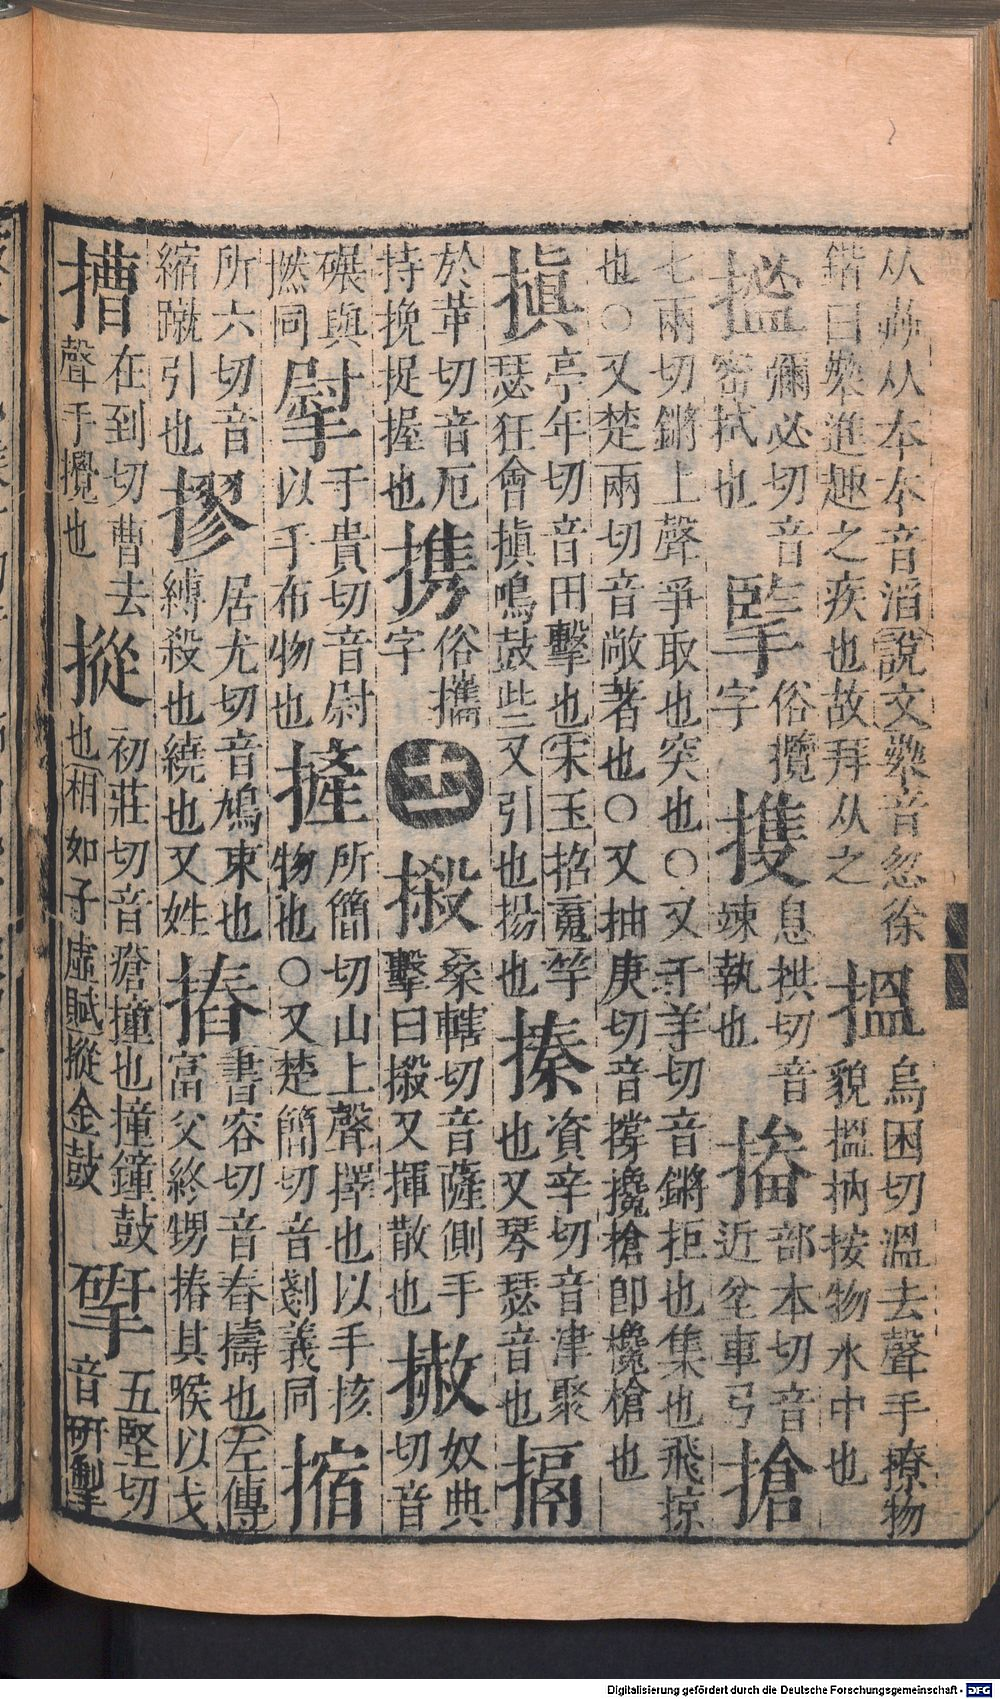 从𠦪从本本音滔說文𠦪音忽徐鍇曰𠦪進趣之疾也故拜从之 搵 烏困切溫去聲手撩物貌搵抐按物水中也
彌必切音密拭也 掔 俗攬字 㩳 息拱切音竦執也 部本切音近坌車弓 搶
七兩切鏘上聲爭取也突也○又千羊切音鏘拒也集也飛掠也○又楚兩切音敞著也○又抽庚切音撐攙槍即欃槍也
搷 亭年切音田擊也宋玉招魂竽瑟狂會搷鳴鼓些又引也揚也 搸 資辛切音津聚也又琴瑟音也 搹
於革切音厄持挽捉握也 携 俗攜字 十一 摋 桑轄切音薩側手擊曰摋又揮散也 奴典切音
碾與撚同 于貴切音尉以手布物也 摌 所簡切山上聲擇也以手核物也○又楚簡切音剗義同 摍
所六切音縮蹴引也 摎 居尤切音鳩束也縛殺也繞也又姓 摏 書容切音春擣也左傳富父終甥摏其喉以戈
在到切曹去聲手攪也 摐 初莊切音瘡撞也撞鐘鼓也相如子虛賦摐金鼓 揅 五堅切音研
Digitalisierung gefördert durch die Deutsche Forschungsgemeinschaft - DFG